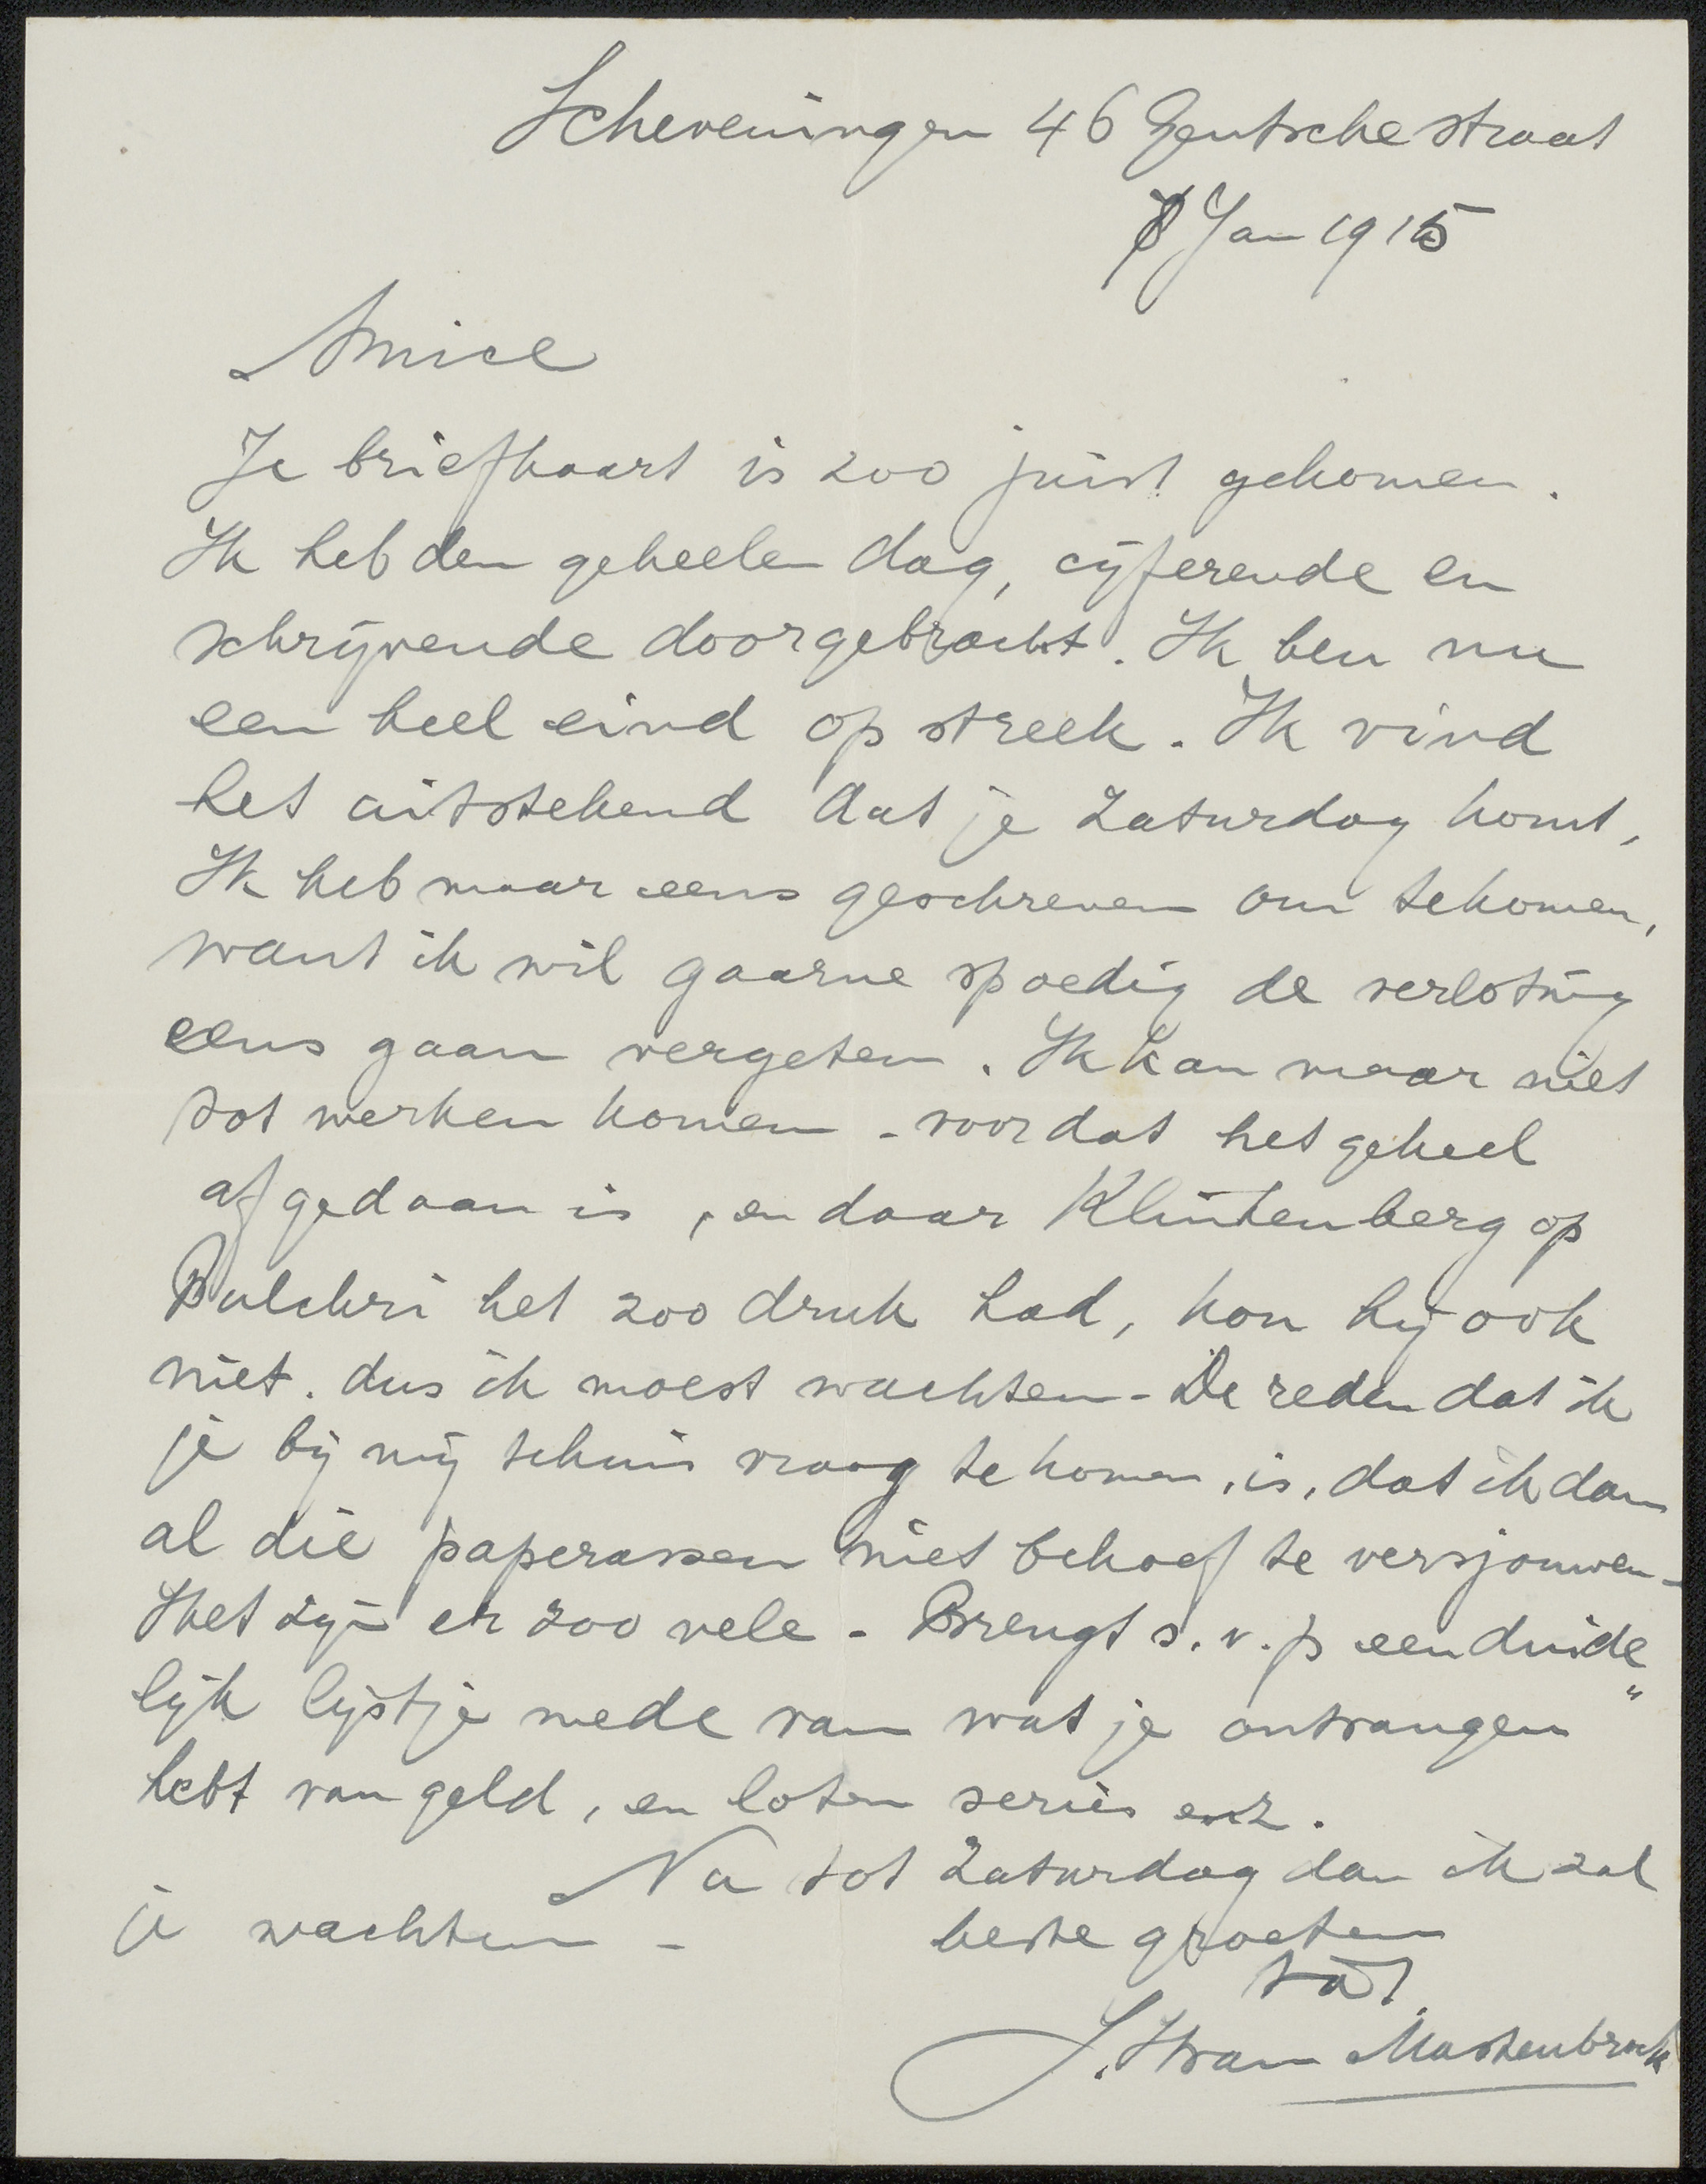 Scheveningen 46 Gentschestraat
8 Jan 1915
Amice
Je briefkaart is zoo juist gekomen.
Ik heb den geheelen dag, cijferende en
schrijvende doorgebracht. Ik ben nu
een heel eind op streek. Ik vind
het uitstekend dat je Zaturdag komt,
Ik heb maar eens geschreven om tekomen,
want ik wil gaarne spoedig de verloting
eens gaan vergeten. Ik kan maar niet
tot werken komen - voordat het geheel
afgedaan is, en daar Klinkenberg op
Pulchri het zoo druk had, kon hij ook
niet. dus ik moest wachten - De reden dat ik
je bij mij tehuis vraag te komen, is, dat ik dan
al die paperassen niet behoef te versjouwen -
Het zijn er zoo vele - Brengt s.v.p een duide„
lijk lijstje mede van wat je ontvangen
hebt van geld, en loten series enz.
Nu tot Zaturdag dan ik zal
je wachten - beste groeten
tat.
J.H van Mastenbroek